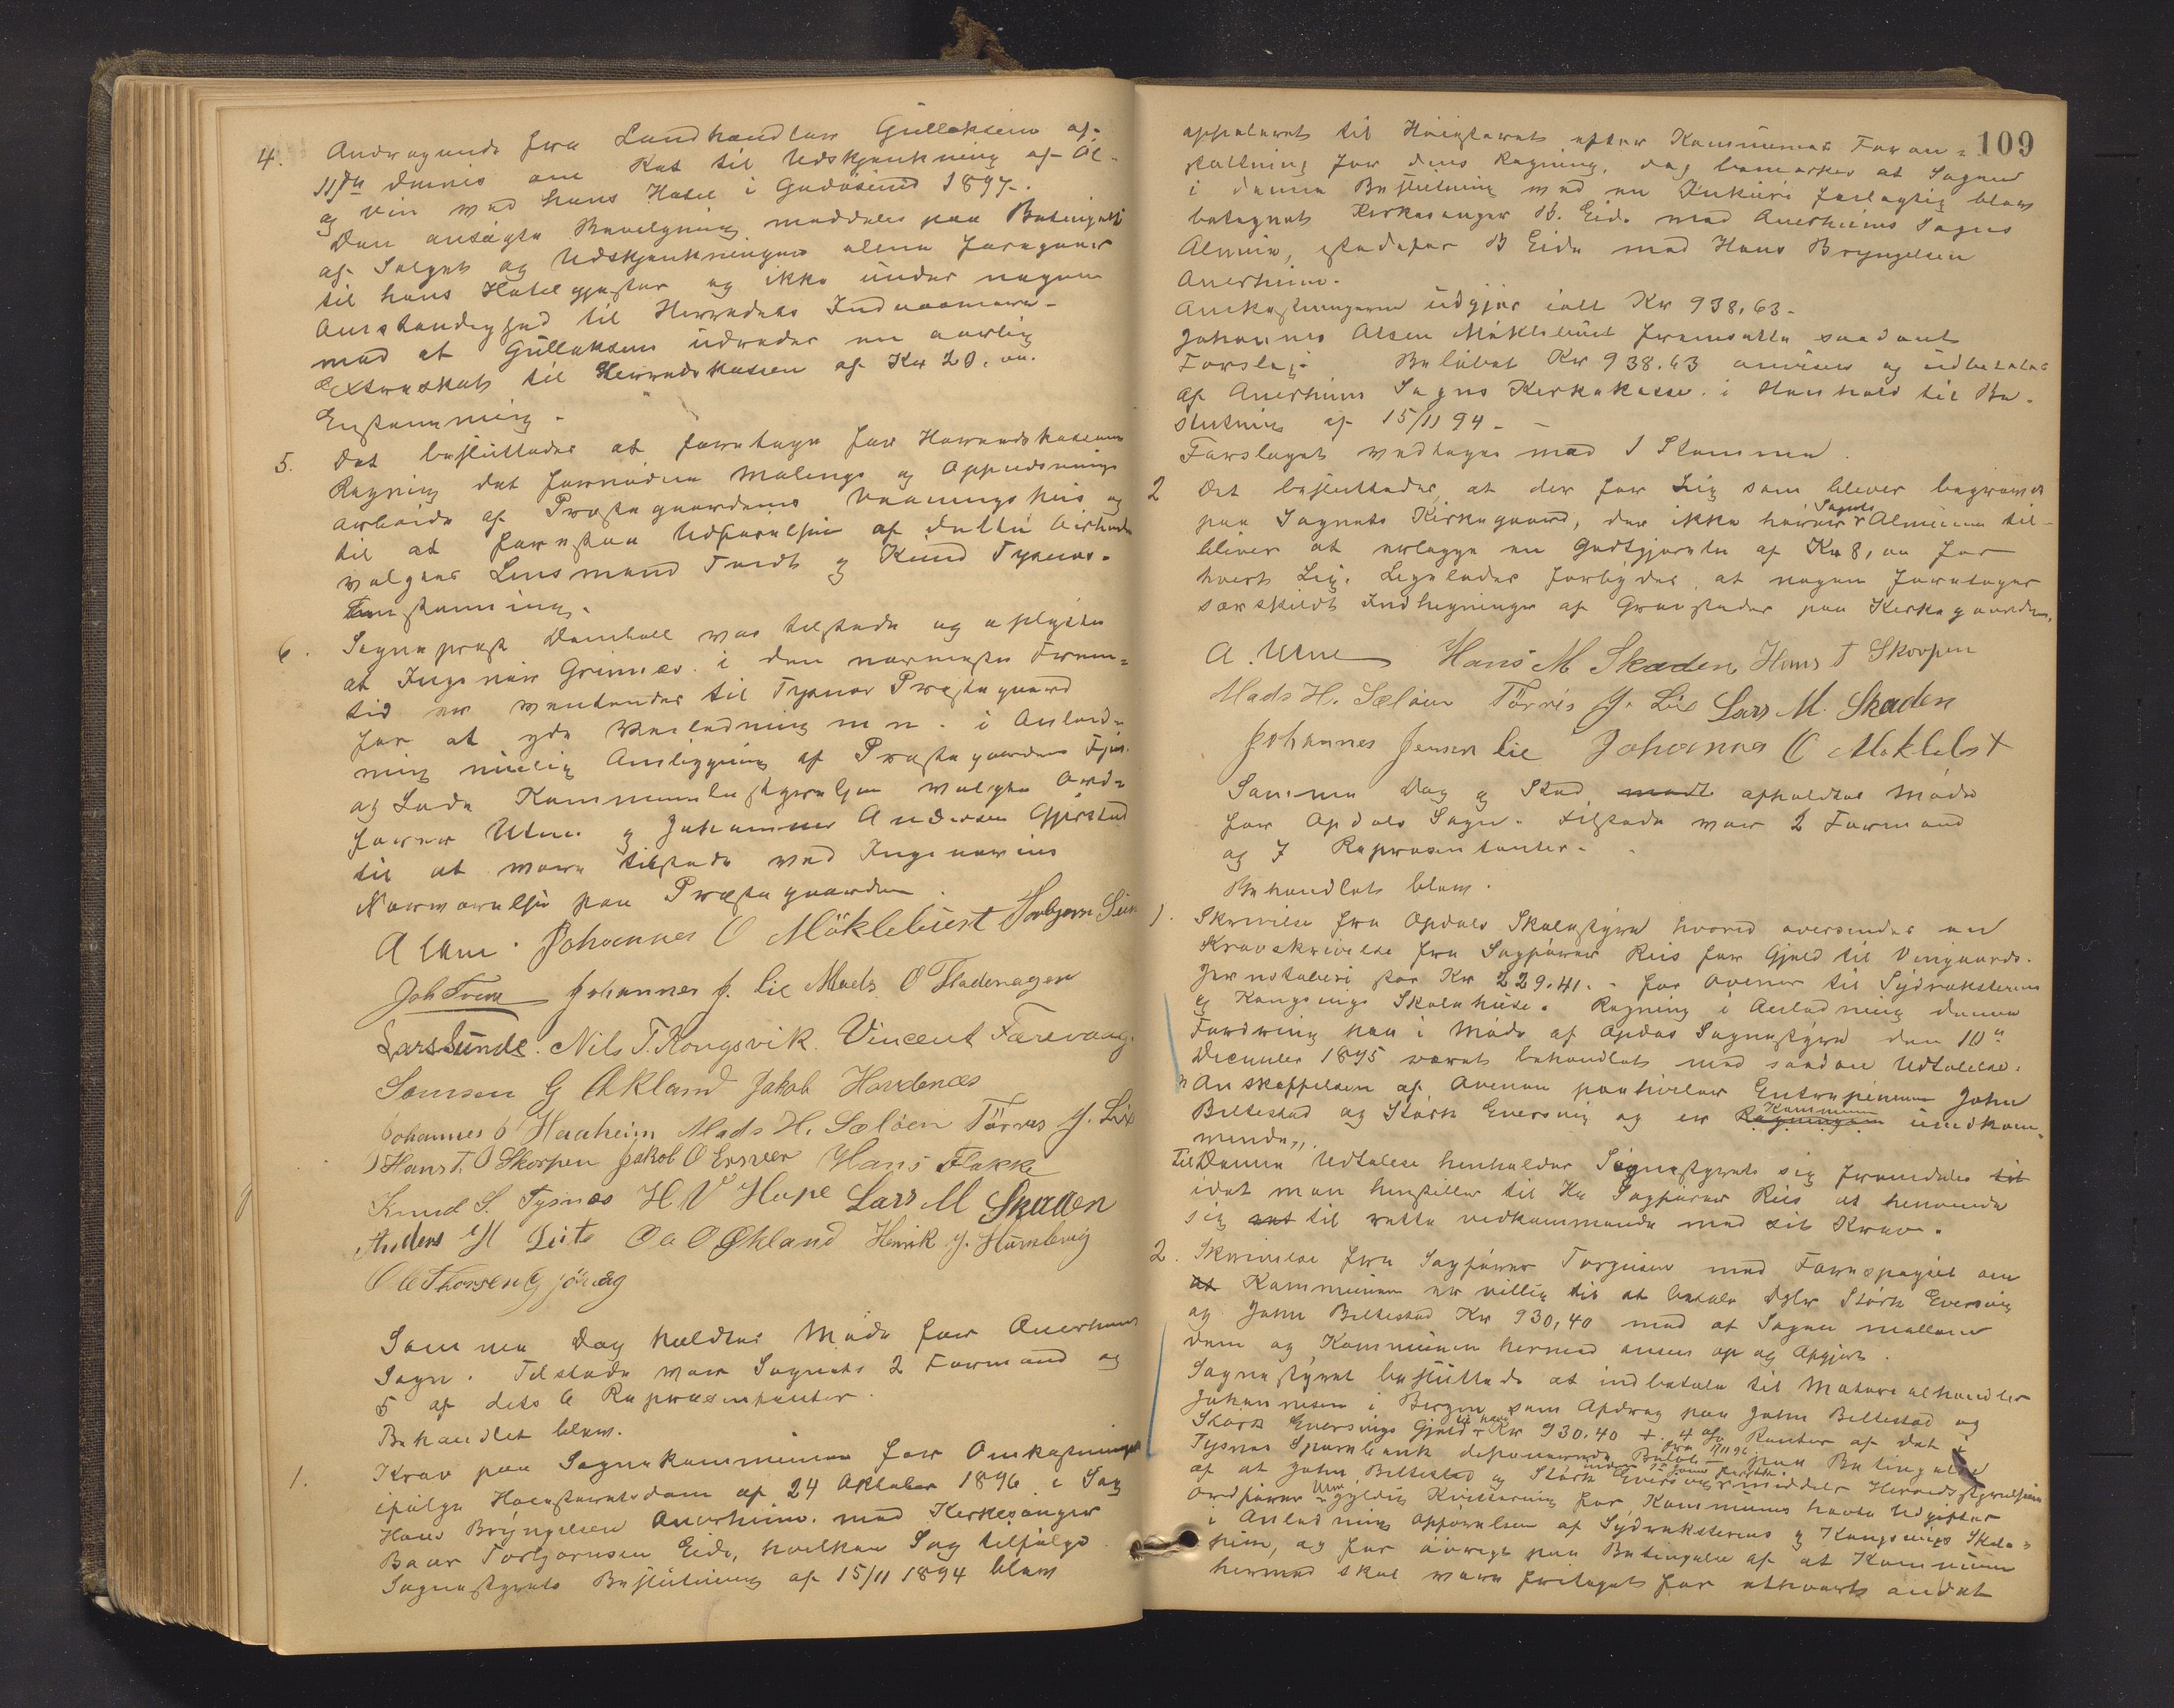 4. Andragende fra Landhandler Gullaksen af
11te dennes om Ret til Udskjænkning af Öl
og Vin ved hans Hotel i Godösund 1897.
Den ansögte Bevilgning meddeles paa Betingelse
af Salget og Udskjænkningen alene foregaar
til hans Hotelgjæster og ikke under nogen
Omstændighed til Herredets Indvaanere
med at Gullaksen udreder en aarlig
Extraskat til Herredskassen af Kr 20.00.
Enstemmig.
5. Det besluttedes at foretage for Herredskassens
Regning det fornödne Malings og Oppudsnings
Arbeide af Præstegaardens Vaaningshus og
til at forestaa Udförelsen af dette Arbeide
valgtes Lensmand Tveit og Knud Tysnes.
Enstemmig.
6. Sogneprest Domholl var tilstede og oplyste
at Ingeniör Grimnes i den nærmeste Frem=
tid er ventendes til Tysnes Præstegaard
for at yde Veiledning m m. i Anled=
ning mulig Omlægning af Præstegaardens Fjös
og Lade Kommunebestyrelsen valgte Ord=
förer Utne og Johannes Andersen Gjerstad
til at være tilstede ved Ingeniörens
Nærværelse paa Præstegaarden.
A Utne. Johannes O Möklebust Torbjørn
Joh Tveit Johannes J. Lie Mads O Fladenagen
Lars Sunde. Nils T. Kongsvik. Vincent Færevaag.
Samson G Økland Jakob Hovdenæs
Johannes O Heraheim Mads H. Sælöen Törres J. Lie
Hans T. O Skorpen Jakob O Ersvær Hans Flakke
Knud S. Tysnæs H V Hope Lars M Skaden
Anders H Leite O a O Økland Henrik J. Humlevig
Ole Thorsen Gjövaag
Samme Dag holdtes Möde for Onarheims
Sogn. Tilstede var Sognets 2 Formænd og
5 af dets 6 Repræsentanter.
Behandlet blev.
1. Krav paa Sognekommunen for Omkostninger
ifölge Höiesteretsdom af 24 Oktober 1896 i Sag
Hans Bryngelsen Onarheim. mod Kirkesanger
Baar Torbjörnsen Eide, hvilken Sag tilfölge
Sognestyrets Beslutning af 15/11 1894 blev
109
appeleret til Höiesteret efter Kommunens Foran=
staltning for dens Regning, dog bemerkes at Sagen
i denne Beslutning ved en Inkurie feilagtig blev
betegnet Kirkesanger B. Eide mod Onarheims Sogns
Almue, istedefor B Eide mod Hans Bryngelsen
Onarheim.
Omkostningerne udgjör ialt Kr 938.63.
Johannes Olsen Möklebust fremsatte saadant
Forslag: Belöbet Kr 938.63 anvises og udbetales
af Onarheims Sogns Kirkekasse i Henhold til Be-
slutning af 15/11 94.
Forslaget vedtoges med 1 Stemme.
2 Det besluttedes, at der for Lig som bliver begravet
paa Sognets Kirkegaard, der ikke hörer Sognets Almue til
bliver at erlægge en Godtgjörelse af Kr 8,00 for
hvert Lig. Ligeledes forbydes at nogen foretager
særskildt Indhegninger af Gravsteder paa Kirkegaarden.
A. Utne Hans M Skaden Hans T Skorpen
Mads H. Sælöen Törris J. Lie Lars M. Skaden
Johannes Jensen Lie Johannes O Möklebst
Samme Dag og Sted modt afholdtes Möde
for Opdals Sogn. Tilstede var 2 Formænd
og 7 Repræsentanter.
Behandlet blev.
1. Skrivelse fra Opdals Skolestyre hvorved oversendes en
Kravskrivelse fra Sagförer Riis for Gjæld til Vingaards
Jernstöberi stor Kr 229.41. for Ovener til Sydrekstevens
og Kongsvigs Skolehuse. Regning i Anledning denne
Fordring har i Möde af Opdas Sognestyre den 10de
December 1895 været behandlet med saadan Udtalelse:
"Anskaffelsen af Ovenen paahviler Entreprenören John
Beltestad og Störk Eversvig og er Regningen Kommunen uvedkom=
mende".
Til Denne Udtalese henholder Sognestyret sig fremdeles til
idet man henstiller til Hr Sagförer Riis at henvende
sig ret til rette vedkommende med sit Krav.
2. Skrivelse fra Sagförer Torgersen med Forespörgsel om
at Kommunen er villig til at betale Dhrr Störk Eversvig
og John Beltestad Kr 930,40 med at Sagen mellem
dem og Kommunen hermed ansees op og Afgjort.
Sognestyret besluttede at indbetale til Materialhandler
Johannesen i Bergen som Afdrag paa John Beltestad og
Störk Eversvigs Gjæld til ham Kr 930.40 + 4 % Renter af det i
Tysnes Sparebank deponerende Belöb fra 1/11 96 paa Betingelse
af at John Beltestad og Störk Eversvig meddeler Herredsstyrelsens
Ordförer Utne gyldig Kvittering for Kommunens havte Udgifter
i Anledning Opförelsen af Sydrekstevens og Kongsvigs Skole=
huse, og for övrigt paa Betingelse af at Kommunen
hermed skal være fritaget for ethvert andet